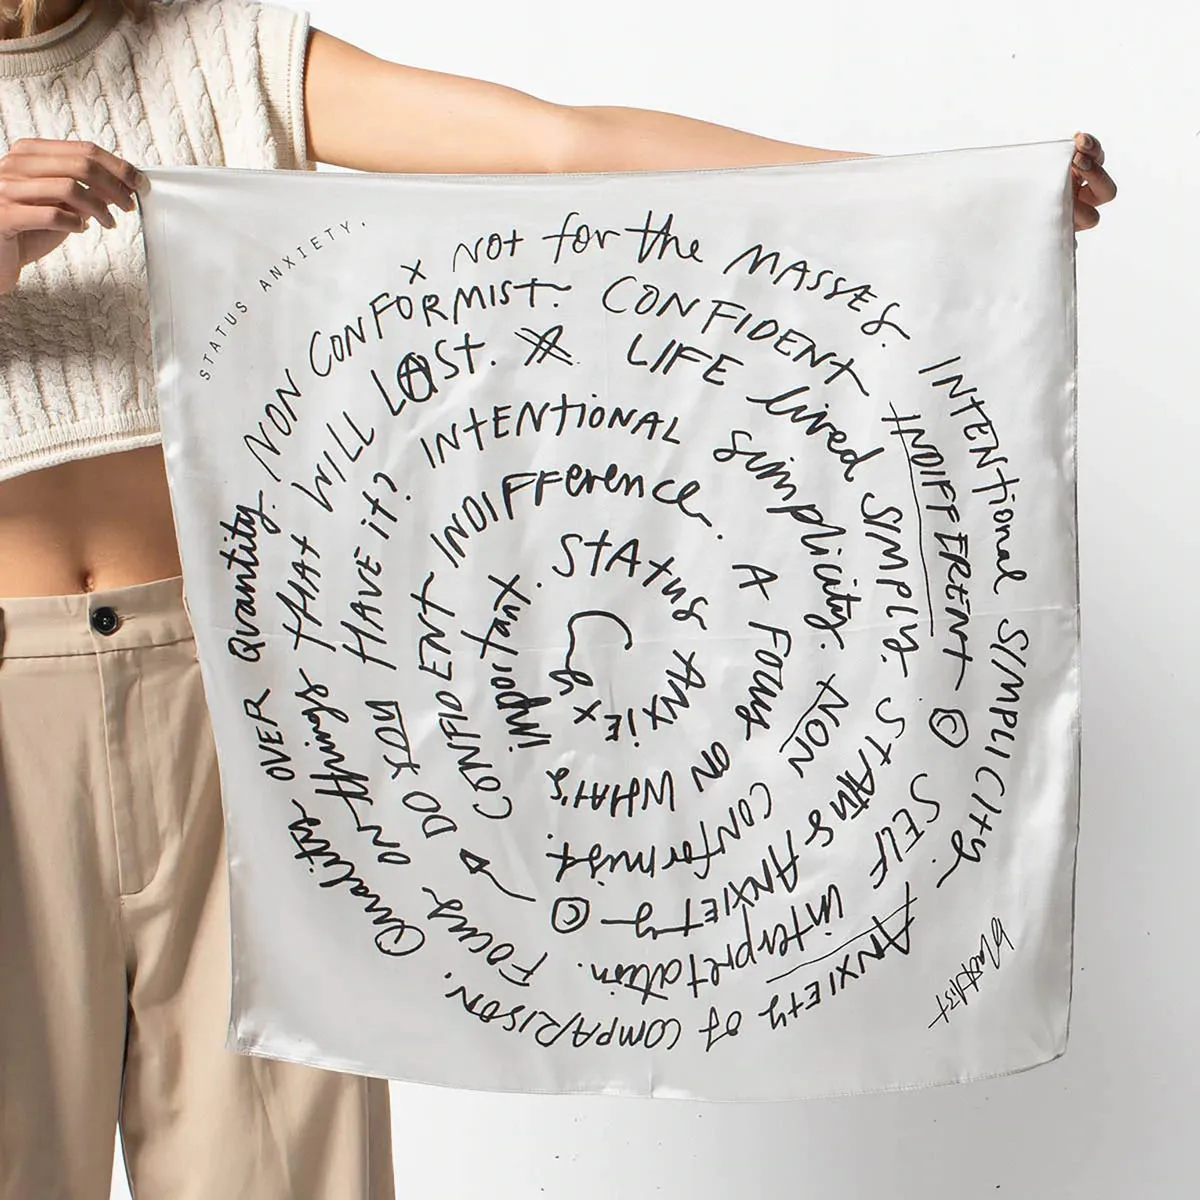 STATUS ANXIETY.
x NOt for the MASSES. INTENtional SIMPLICIty. ANXIEty of COMPARISON.
Quality OVER Quantity. NON CONFORMIST. CONFIDENt INDIFFERENt © SELF interpretation.
Focus on things tHAt WILL LAST. LIFE lived SIMPLY. StAtus ANXIEty ©
DO YOU HAVE it? INtENtIONAL Simplicity. NON CONformist.
CONFIDENT INDIFFerence. A FOCUS ON WHAt's important.
StAtus ANXIE
blacklist